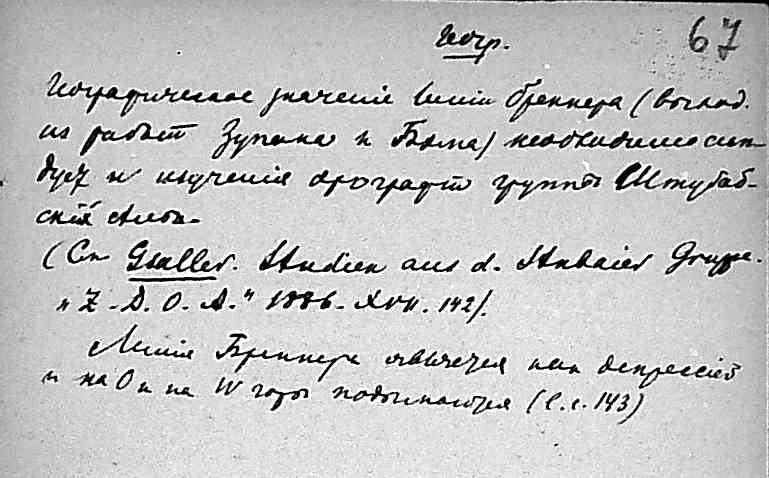 Геогр. 67
Географическое значенiе линiи Бреннера (вывод.
из работ Зупана и Бэма) необходимо
и изученiя орографiи группы Штубай-
ских Альп.
(См Gsaller. Studien aus d. Stubaier Gruppe.
„Z. D. O. A." 1886. XVII. 142).
Линiя Бреннера является как депрессiей
и на O и на W горы подымаются (l. c. 143)